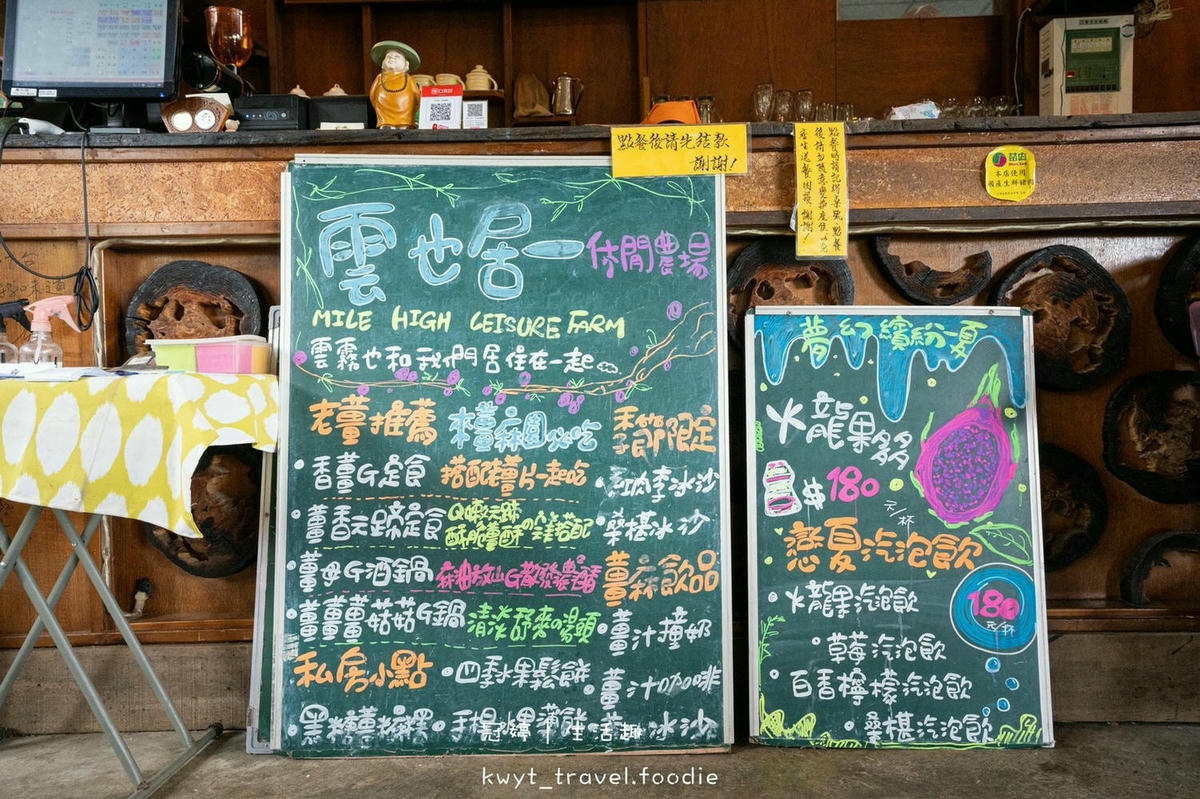 點餐後請先結款
謝謝!
本店使用
國產生鮮豬肉
雲也居一休閒農場
MILE HIGH LEISURE FARM
雲霧也和我們居住在一起
老薑推薦
香薑G定食 搭配薑片一起吃
薑香元蹄定食
薑母G酒鍋 麻油放山G散發濃酒香
薑薑薑菇菇G鍋 清淡舒來の湯頭
私房小點
四季水果鬆餅
黑糖薑麻糬
季節限定
紅肉李冰沙
桑椹冰沙
薑麻飲品
薑汁撞奶
薑汁咖啡
冰沙
夢幻繽紛一夏
火龍果多多
$180
元/杯
戀夏汽泡飲
180
元/杯
火龍果汽泡飲
草莓汽泡飲
百香檸檬汽泡飲
桑椹汽泡飲
生活趣
kwyt_travel.foodie